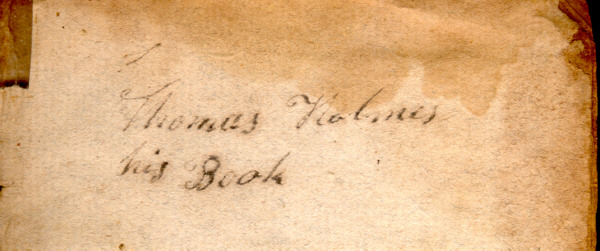 Thomas Holmes
his Book